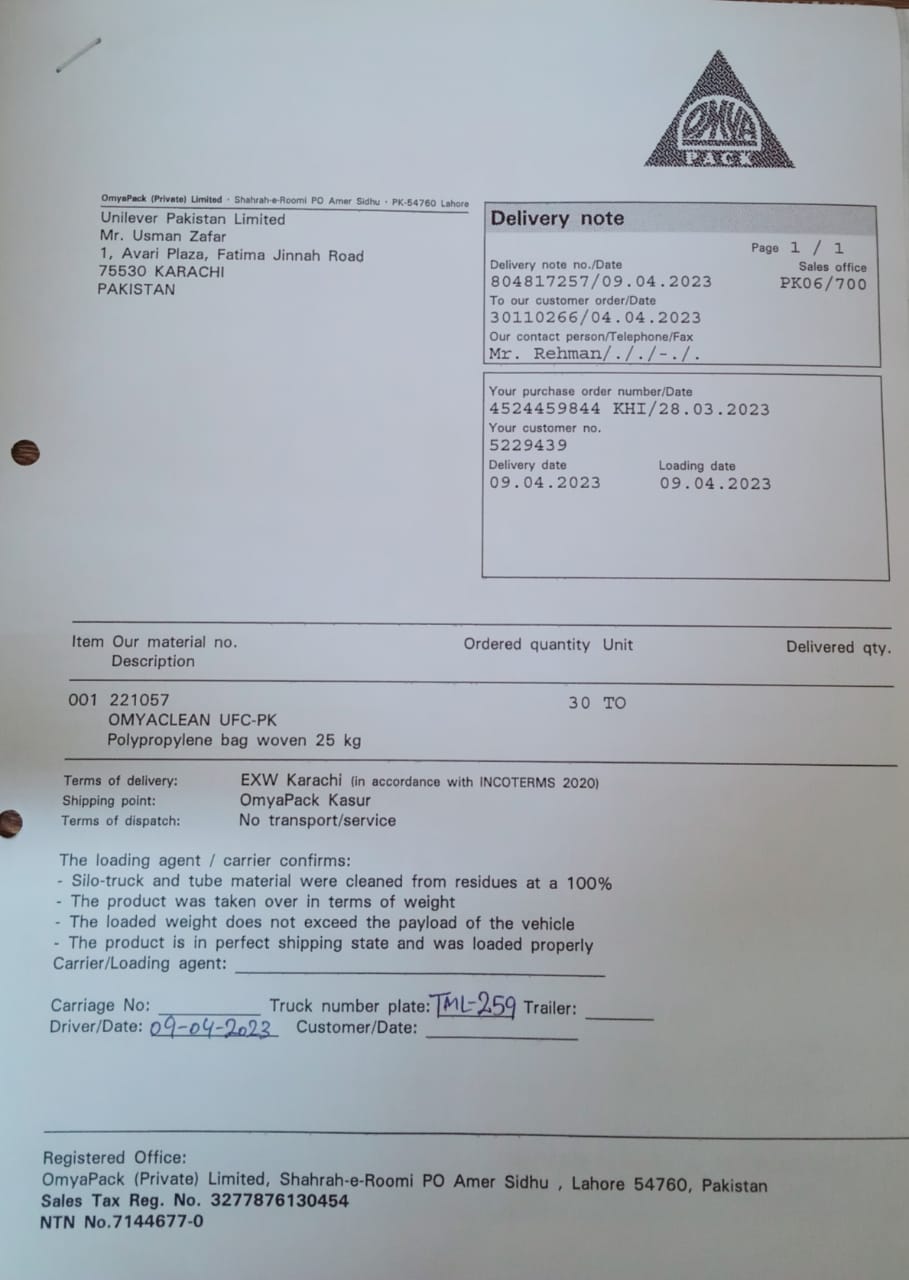 OMYA
PACK
OmyaPack (Private) Limited · Shahrah-e-Roomi PO Amer Sidhu · PK-54760 Lahore
Unilever Pakistan Limited
Mr. Usman Zafar
1, Avari Plaza, Fatima Jinnah Road
75530 KARACHI
PAKISTAN
Delivery note
Page 1 / 1
Delivery note no./Date Sales office
804817257/09.04.2023 PK06/700
To our customer order/Date
30110266/04.04.2023
Our contact person/Telephone/Fax
Mr. Rehman/././-./.
Your purchase order number/Date
4524459844 KHI/28.03.2023
Your customer no.
5229439
Delivery date Loading date
09.04.2023 09.04.2023
Item Our material no. Ordered quantity Unit Delivered qty.
Description
001 221057 30 TO
OMYACLEAN UFC-PK
Polypropylene bag woven 25 kg
Terms of delivery: EXW Karachi (in accordance with INCOTERMS 2020)
Shipping point: OmyaPack Kasur
Terms of dispatch: No transport/service
The loading agent / carrier confirms:
- Silo-truck and tube material were cleaned from residues at a 100%
- The product was taken over in terms of weight
- The loaded weight does not exceed the payload of the vehicle
- The product is in perfect shipping state and was loaded properly
Carrier/Loading agent:
Carriage No: Truck number plate: TML-259 Trailer:
Driver/Date: 09-04-2023 Customer/Date:
Registered Office:
OmyaPack (Private) Limited, Shahrah-e-Roomi PO Amer Sidhu , Lahore 54760, Pakistan
Sales Tax Reg. No. 3277876130454
NTN No.7144677-0